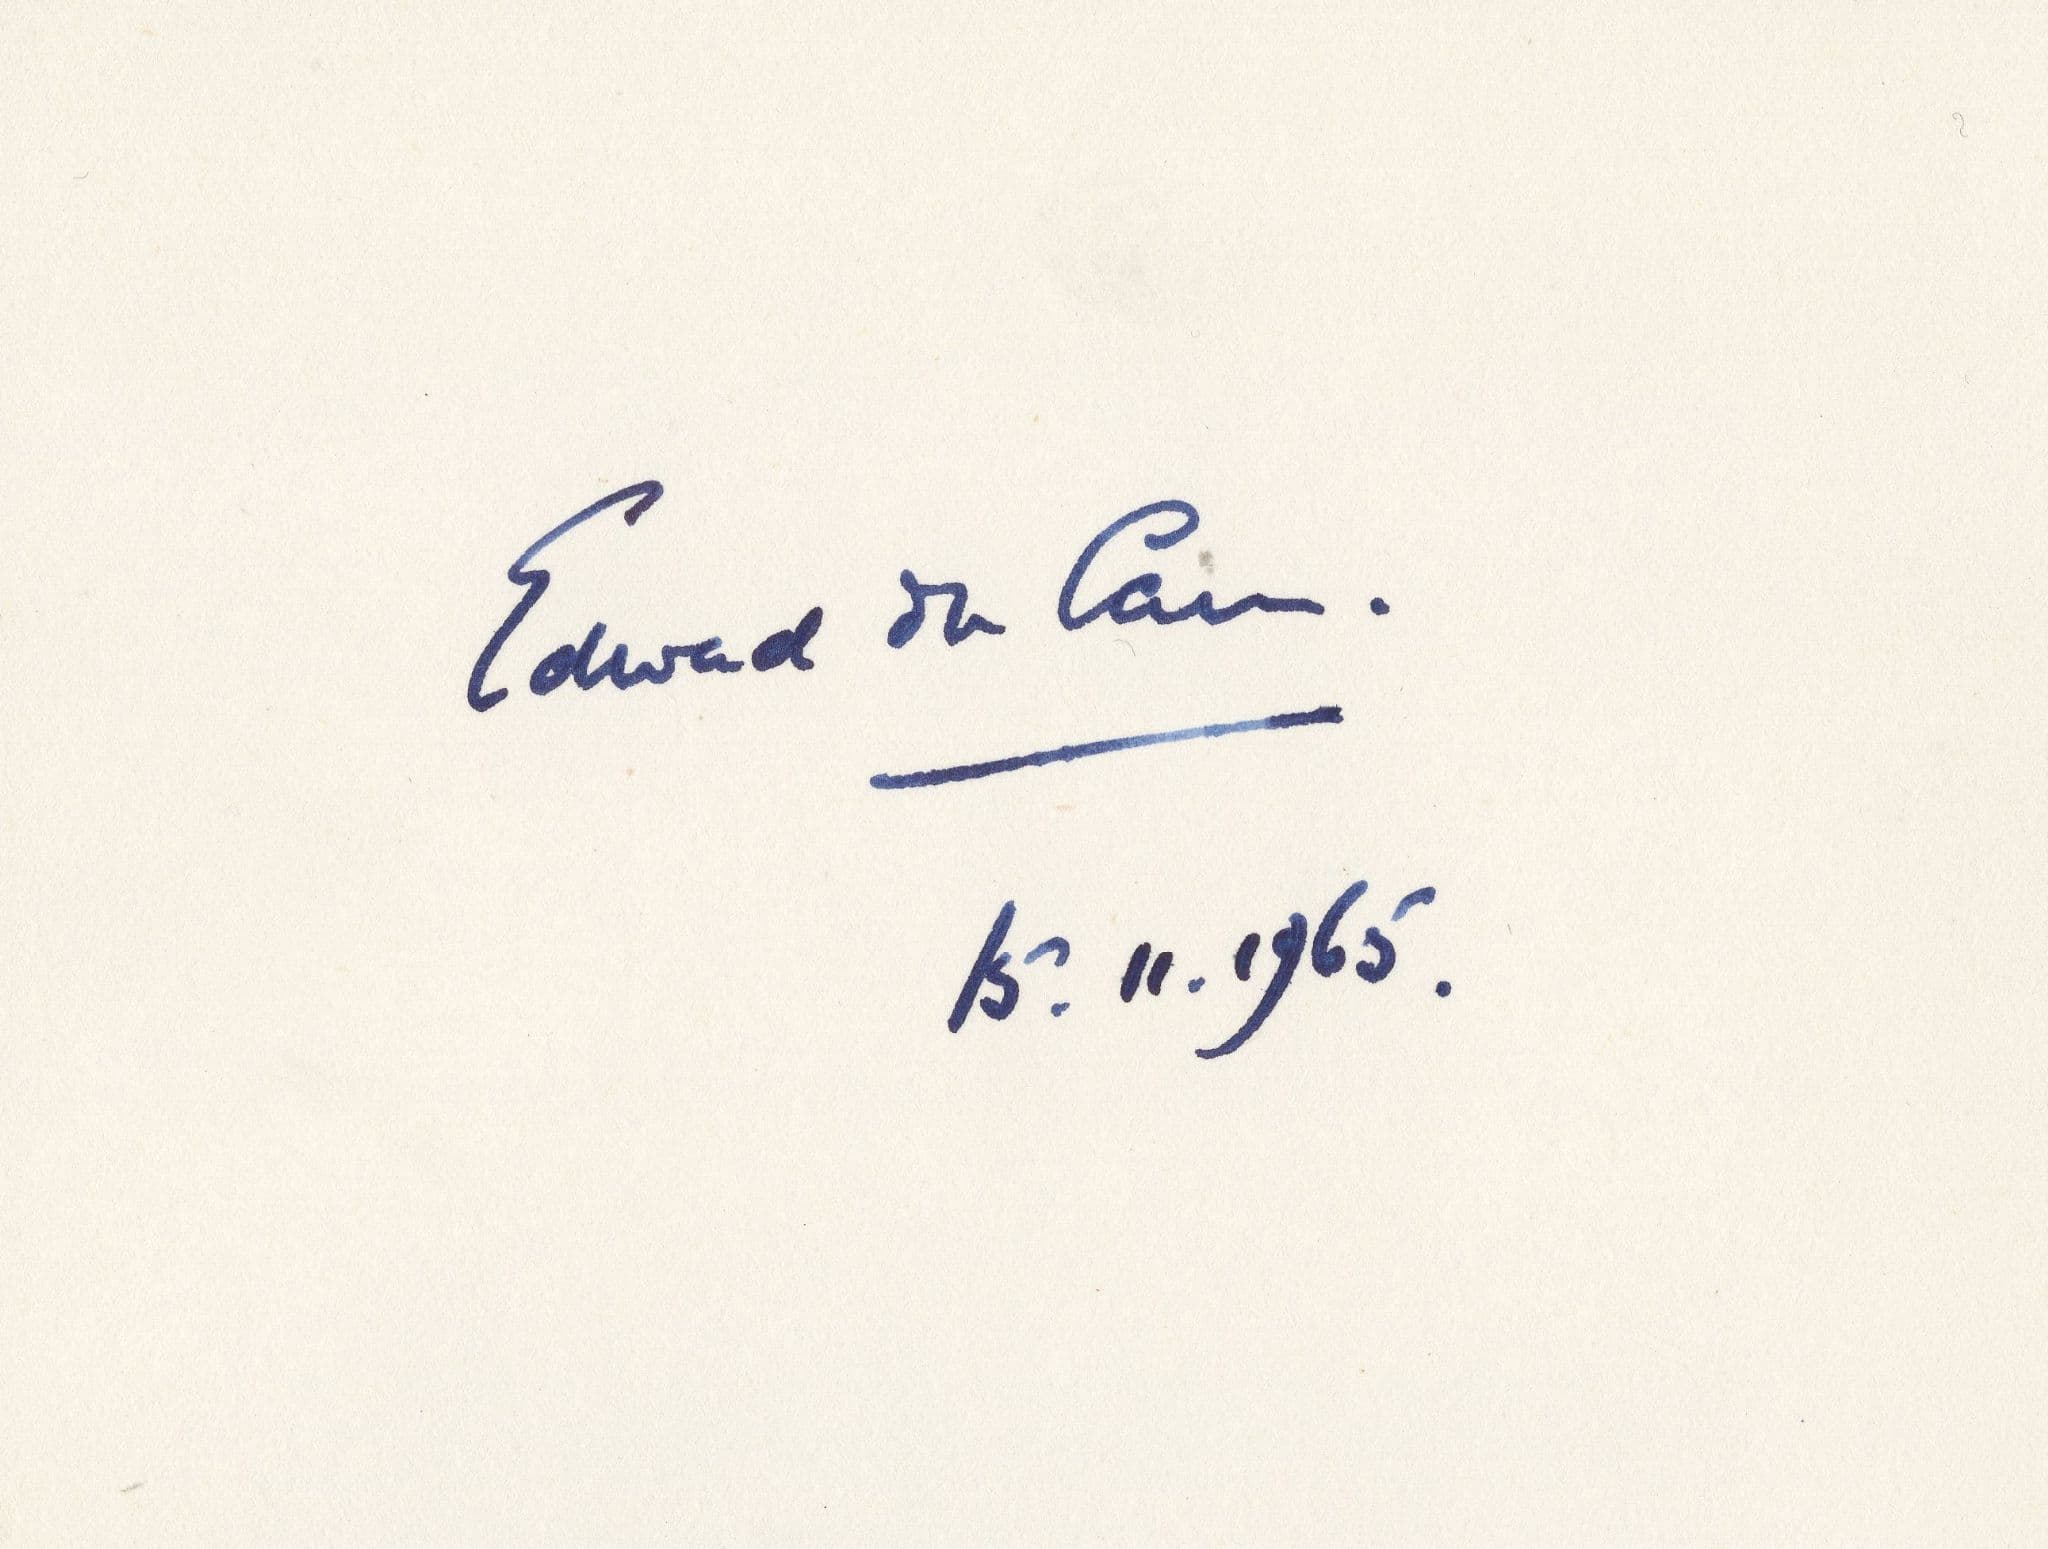 Edward du Cann.
15. 11. 1965.